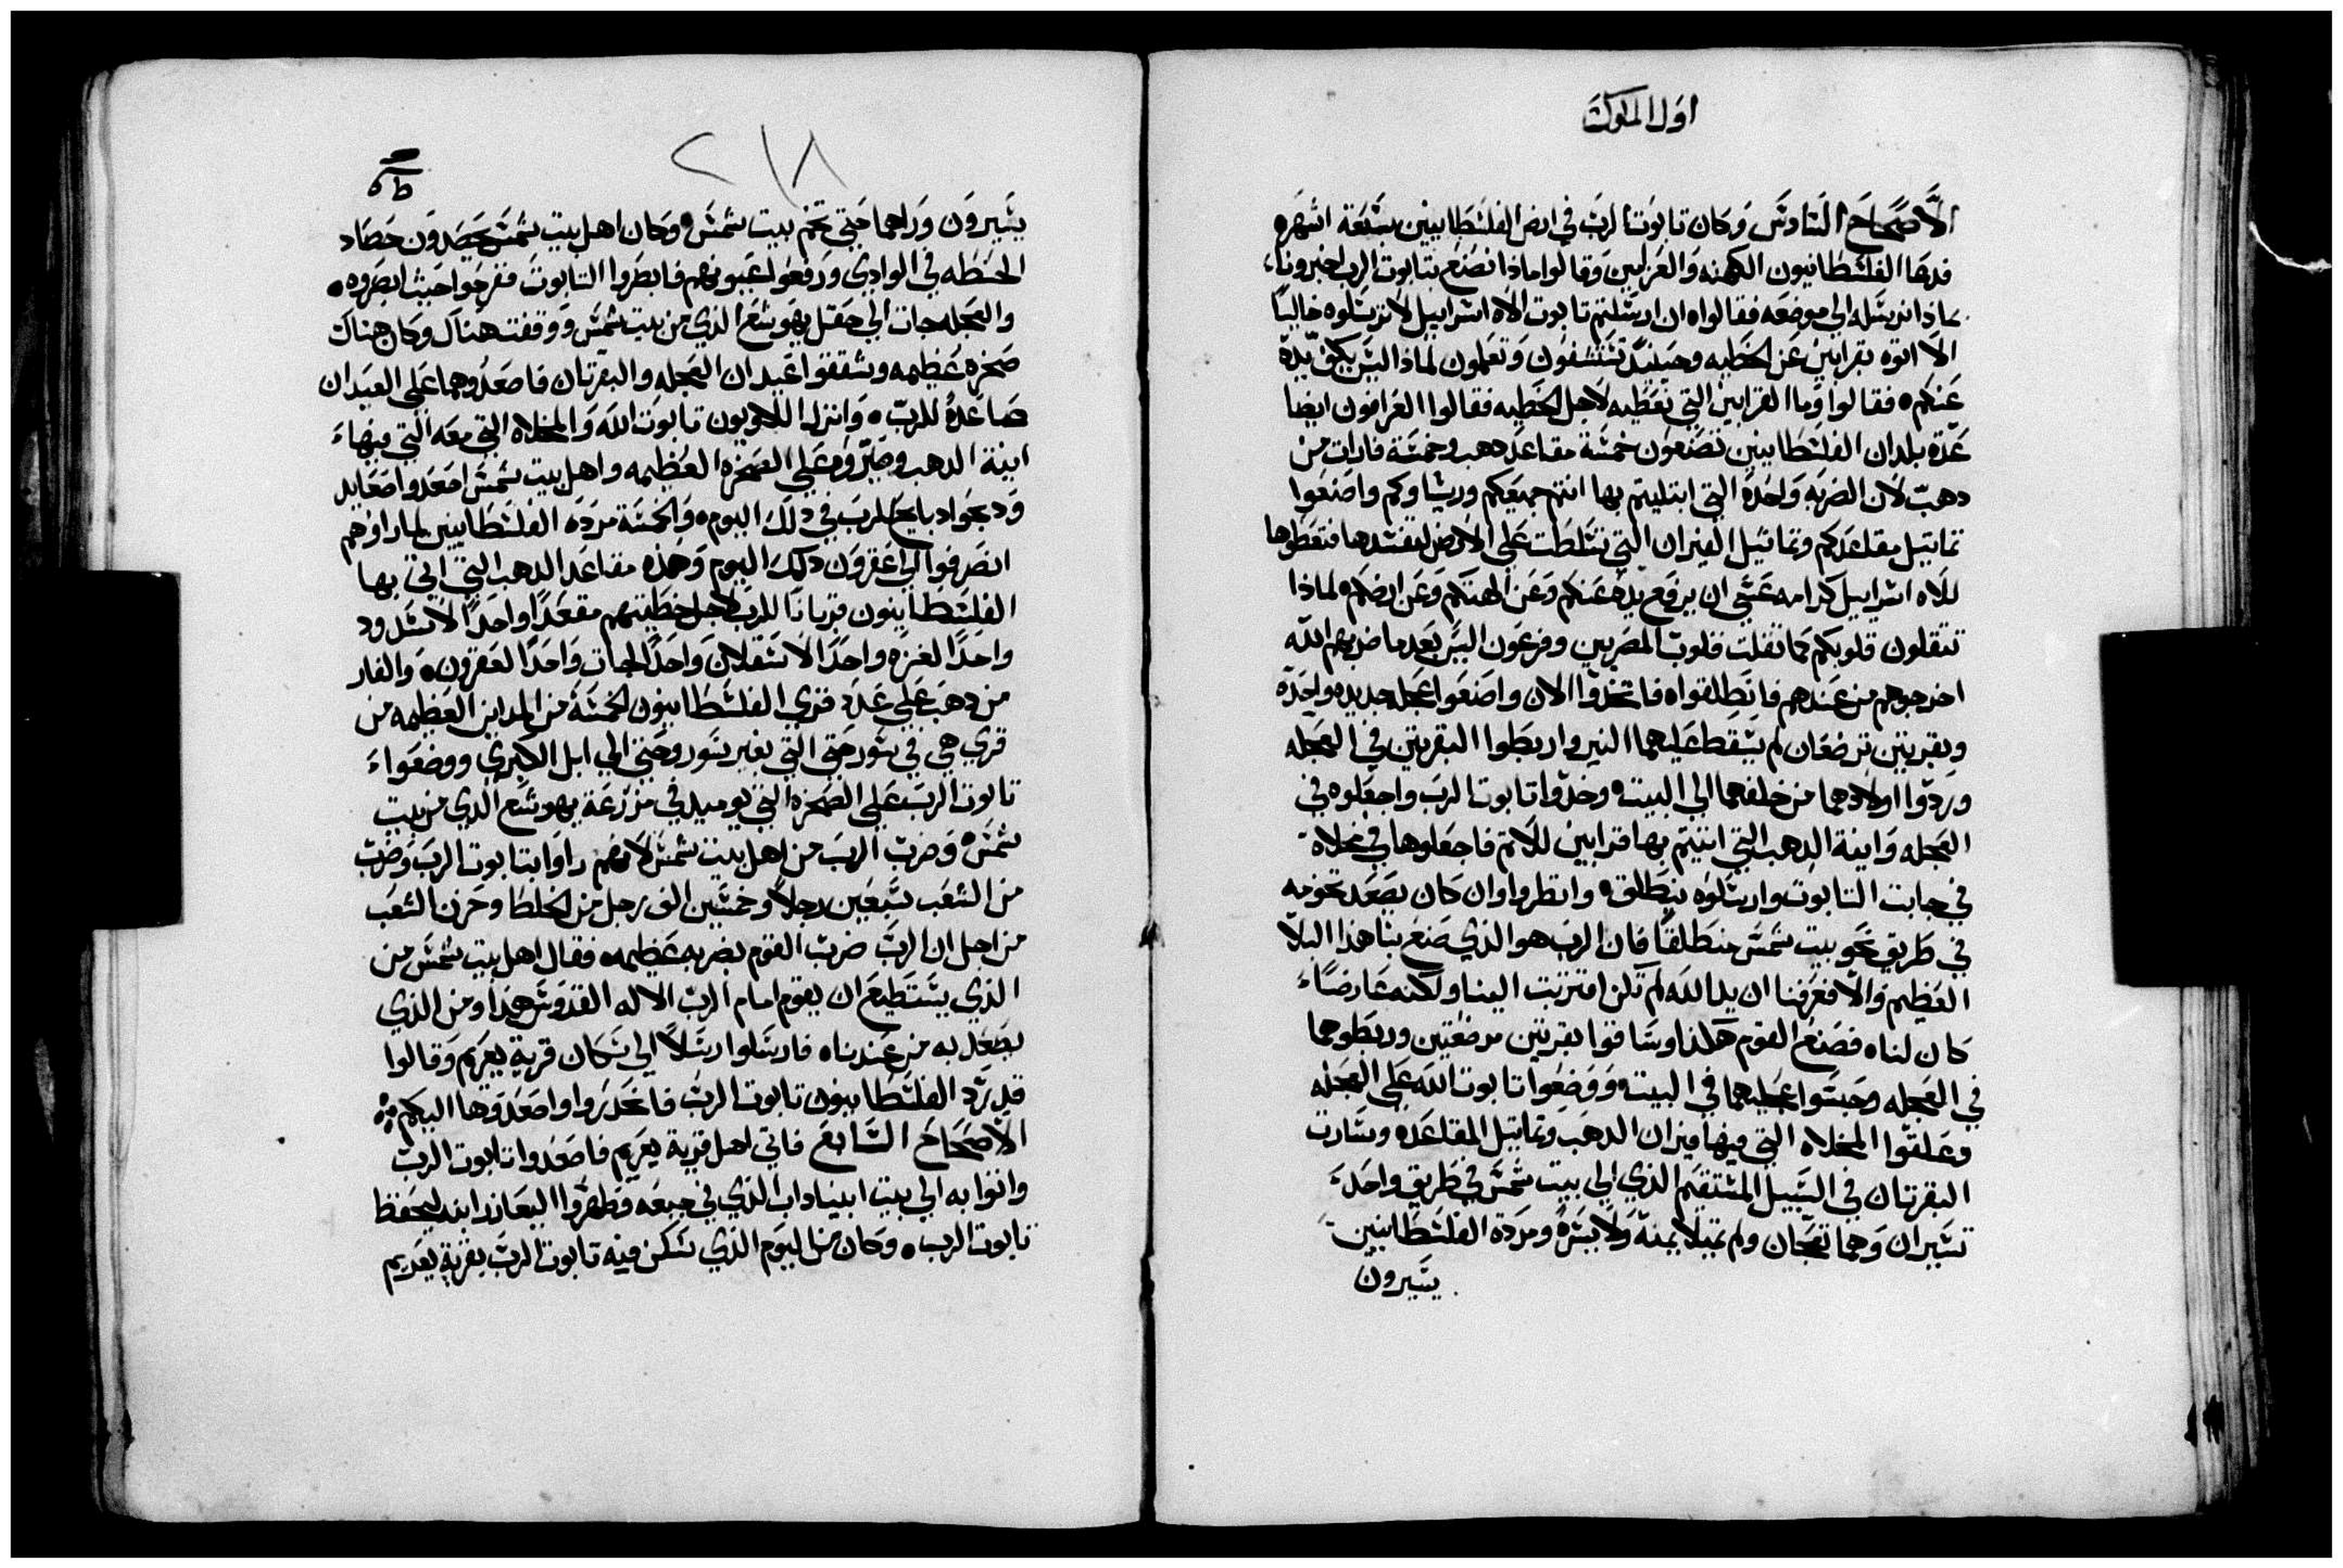 اول الملوك
الاصحاح السادس وكان تابوت الرب في ارض الفلسطانيين سبعة اشهره
فدعا الفلسطانيون الكهنه والعرافين وقالوا ماذا نصنع بتابوت الرب اخبرونا
بماذا نرسله الي موضعه فقالوا ان ارسلتم تابوت الاه اسراييل لا ترسلوه خاليا
الا اتوه بقرابين عن الخطيه وحينيد تستشفون وتعلمون لماذا ليس يكف يده
عنكم فقالوا وما القرابين التي نعطيه لاجل الخطيه فقالوا العرافون ايضا
عدة بلدان الفلسطانيين تصنعون خمسة مقاعد دهب وخمسة فارات من
دهب لان الضربه واحدة التي ابتليتم بها انتم جميعكم وريساوكم واصنعوا
تماتيل مقاعدكم وتماتيل الفيران التي تسلطت علي الارض لتفسدها فتعطوها
للاه اسراييل كرامه عسي ان يرفع يده عنكم وعن الهتكم وعن ارضكم لماذا
تتقلون قلوبكم كما تقلت قلوب المصريين وفرعون اليس بعد ما ضربهم الله
اخرجوهم من عندهم فانطلقوا فاتخدوا الان واصنعوا عجله جديده واحده
وبقرتين ترضعان لم يسقط عليهما النير واربطوا البقرتين في العجله
وردوا اولادهما من خلفهما الي البيت وخدوا تابوت الرب واجعلوه في
العجله وانية الدهب التي اتيتم بها قرابين للاتم فاجعلوها في مخلاة
في جانب التابوت وارسلوه ينطلق وانظروا وان كان يصعد تخومه
في طريق نحو بيت شمس منطلقا فان الرب هو الذي صنع بنا هذا البلا
العظيم والا فعرفنا ان يد الله لم تكن اقتربت الينا ولكنه عارضا
كان لنا فصنع القوم هكذا وساقوا بقرتين مرضعتين وربطوهما
في العجله وحبسوا عجليهما في البيت ووضعوا تابوت الله علي العجله
وعلقوا المخلاه التي فيها فيران الدهب وتماتيل المقاعده وسارت
البقرتان في السبيل المستقيم الذي الي بيت شمس في طريق واحد
تسيران وهما تعجان ولم تميلا يمنة ولا يسرة ومردة الفلسطانيين
يسيرون
٢١٨
يسيرون وراهما حتي تخم بيت شمس وكان اهل بيت شمس يحصدون حصاد
الحنطه في الوادي ورفعوا عيونهم فابصروا التابوت ففرحوا حيث ابصروه
والعجله جات الي حقل يهوشع الذي من بيت شمس ووقفت هناك وكان هناك
صخره عظيمه وشققوا عيدان العجله والبقرتان فاصعدوهما علي العيدان
صاعدة للرب وانزل اللاويون تابوت الله والمخلاه التي معه التي فيها
انية الدهب وصيروه علي الصخره العظيمه واهل بيت شمس اصعدوا صعايد
ودبحوا دبايح للرب في دلك اليوم والخمسة مردة الفلسطانيين لما راوهم
انصرفوا الي عقرون دلك اليوم وهذه مقاعد الدهب التي اتي بها
الفلسطانيون قربانا للرب لاجل خطيتهم مقعدا واحدا لاسدود
واحدا لغزه واحدا لاسقلان واحدا لجات واحدا لعقرون والفار
من دهب علي عدد قري الفلسطانيون الخمسة من المداين العظيمه من
قري هي في سور حتي التي بغير سور وحتي الي ابل الكبري ووضعوا
تابوت الرب علي الصخره التي يوميد في مزرعة يهوشع الذي من بيت
شمس وضرب الرب من اهل بيت شمس لانهم راوا بتابوت الرب وضرب
من الشعب سبعين رجلا وخمسين الف رجل من الخلطا وحزن الشعب
من اجل ان الرب ضرب القوم بضربه عظيمه فقال اهل بيت شمس من
الذي يستطيع ان يقوم امام الرب الاله القدوس هذا ومن الذي
يصعد به من عندنا فارسلوا رسلا الي سكان قرية يعريم وقالوا
قد رد الفلسطانيون تابوت الرب فانحدروا واصعدوها اليكم
الاصحاح السابع فاتي اهل قرية يعريم فاصعدوا تابوت الرب
واتوا به الي بيت ابيناداب الذي في جبعه وطهروا اليعازر ابنه ليحفظ
تابوت الرب وكان من اليوم الذي سكن فيه تابوت الرب بقرية يعريم